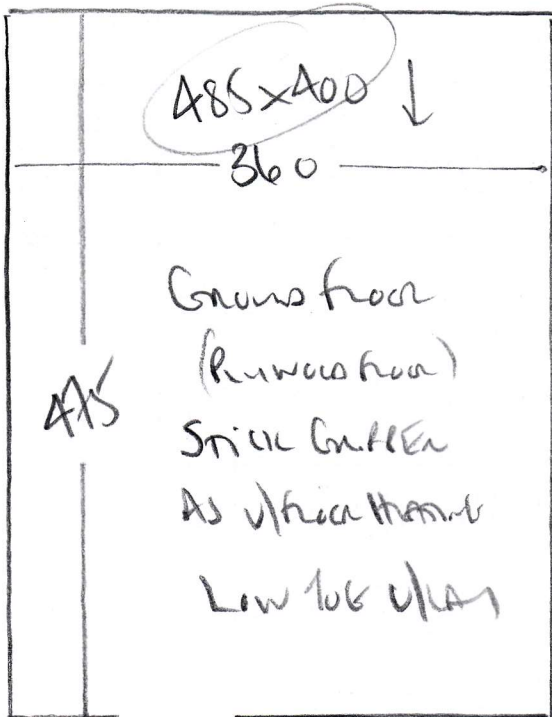 485x400
360
GROUND FLOOR
(PLYWOOD FLOOR)
475
STICK GRIPPER
AS U/FLOOR HEATING
LOW TOG U/LAY